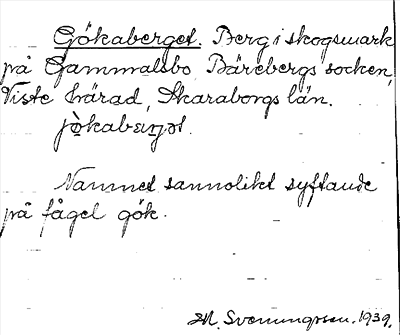 Gökaberget. Berg i skogsmark
på Gammalsbo Bärebergs socken,
Viste härad, Skaraborgs län.
jö̀kabær̨ət.
Namnet sannolikt syftande
på fågel gök.
M. Svenungsson. 1939.